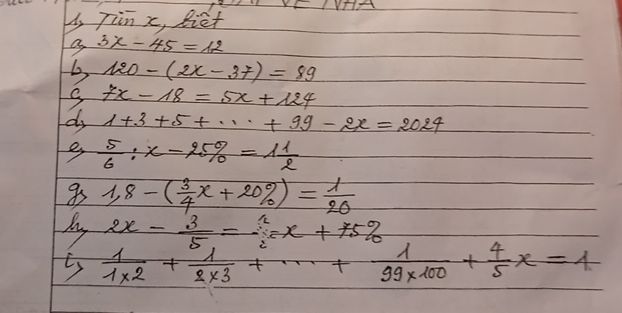 1, Tìm x, biết
a, 3x - 45 = 12
b, 120 - (2x - 37) = 89
c, 7x - 18 = 5x + 124
d, 1 + 3 + 5 + ... + 99 - 2x = 2024
e, 5/6 : x - 25% = 1 1/2
g, 1,8 - (3/4 x + 20%) = 1/20
h, 2x - 3/5 = x + 75%
i, 1/1×2 + 1/2×3 + ... + 1/99×100 + 4/5 x = 1